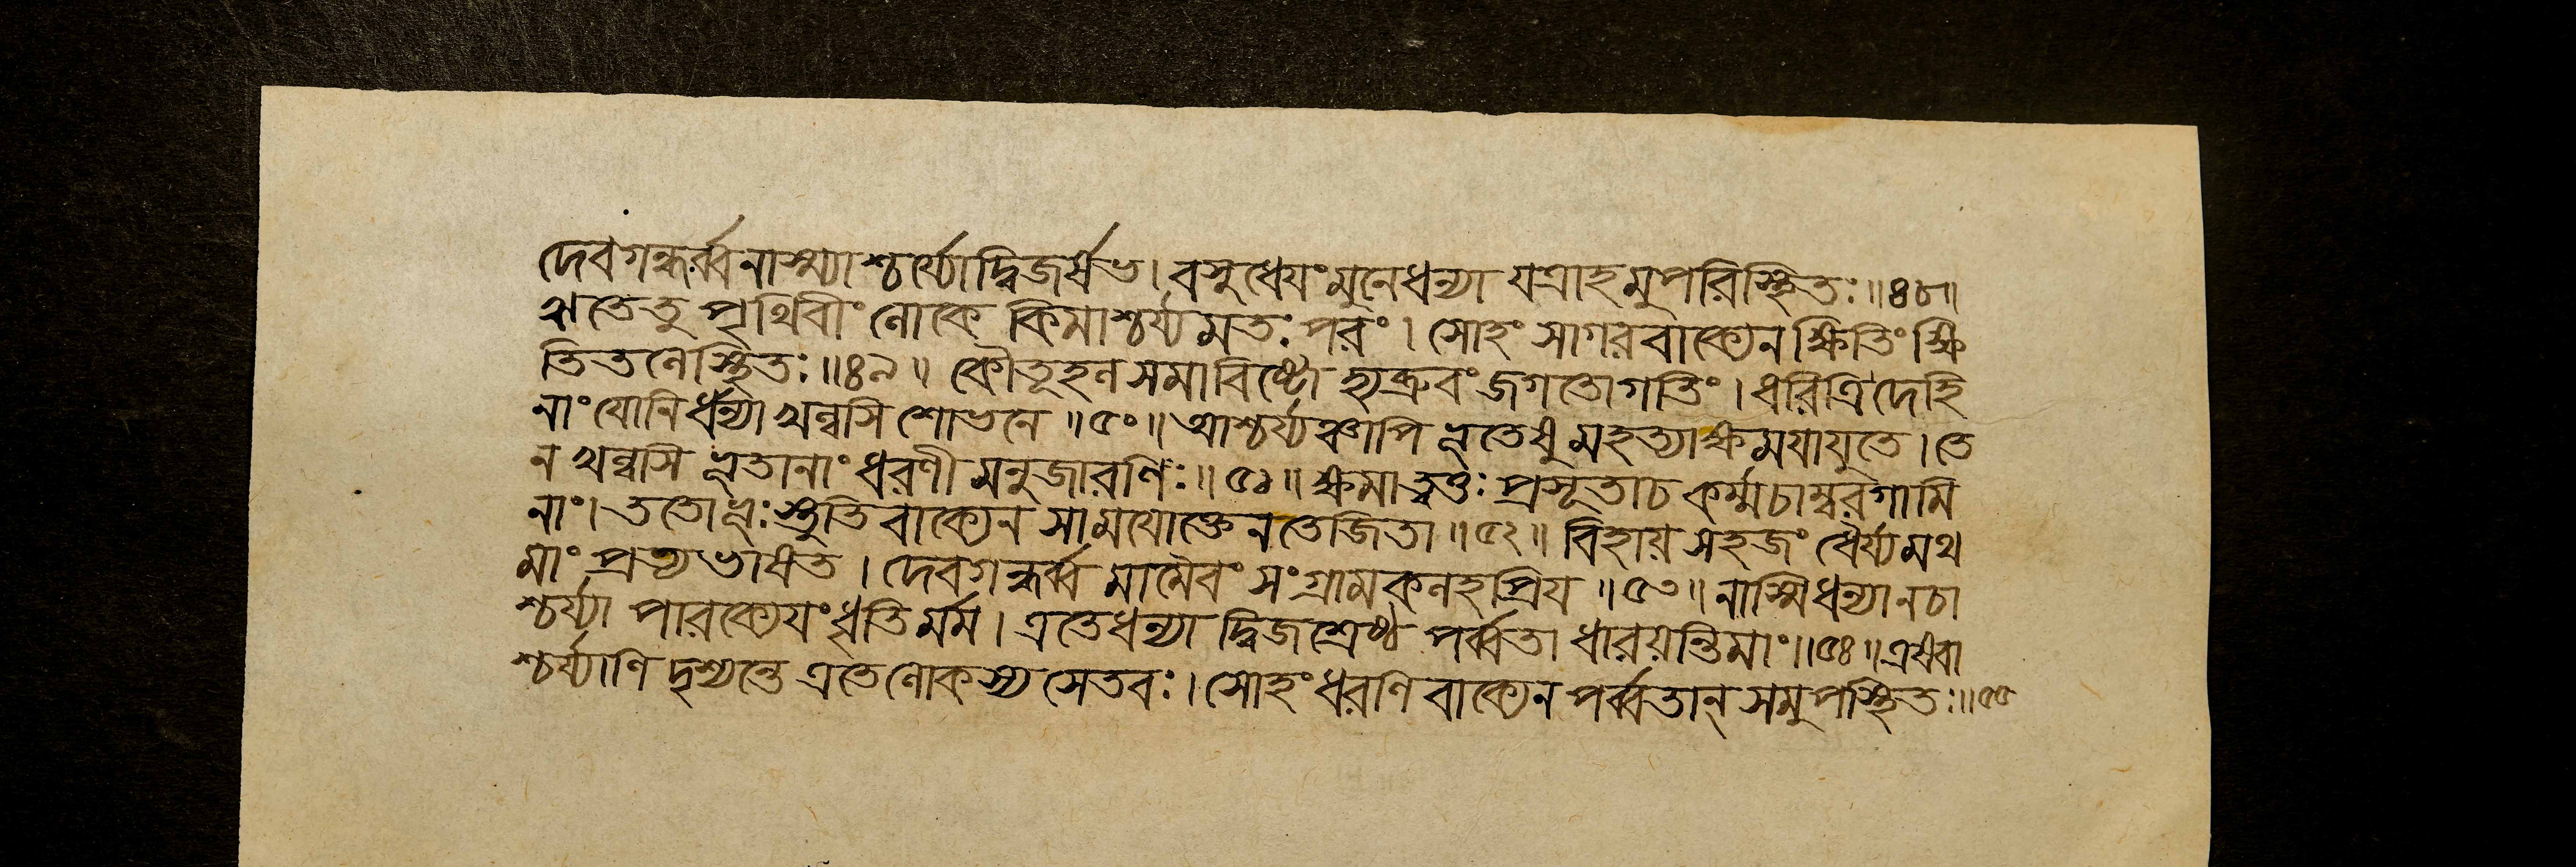 দেবগন্ধর্ব্বনাস্ম্যাশ্চর্য্যোদ্বিজর্ষভ। বসুধেয়ংমুনেধন্যা যত্রাহমুপরিস্থিতঃ॥৪৮॥
ঋতেতু পৃথিবীং লোকে কিমাশ্চর্য্যমতঃপরং। সোহং সাগরবাক্যেন ক্ষিতিং ক্ষি
তিতলেস্থিতঃ॥৪৯॥ কৌতূহলসমাবিষ্টো হ্যব্রুবং জগতোগতিং। ধরিত্রিদেহি
নাং যোনির্ধন্যা খল্বসি শোভনে॥৫০॥ আশ্চর্য্যঞ্চাপি ভূতেষু মহত্যাক্ষময়াযুতে। তে
ন খল্বাসি ভূতানাং ধরণী মনুজারণিঃ॥৫১॥ ক্ষমাত্বত্তঃ প্রসূতাচ কর্ম্মচাম্বরগামি
নাং। ততোভূঃ স্তুতি বাক্যেন সামযোক্তেন তেজিতা॥৫২॥ বিহায় সহজং ধৈর্য্যমথ
মাং প্রত্যভাষত। দেবগন্ধর্ব্ব মামৈবং সংগ্রামকলহপ্রিয়॥৫৩॥ নাস্মিধন্যা নচা
শ্চর্য্যা পারক্যেয়ং ধৃতির্মম। এতেধন্যা দ্বিজশ্রেষ্ঠ পর্ব্বতা ধারয়ন্তিমাং॥৫৪॥ এষেবা
শ্চর্য্যাণি দৃশ্যন্তে এতে লোকস্য সেতবঃ। সোহং ধরণি বাক্যেন পর্ব্বতান্ সমুপস্থিতঃ॥৫৫